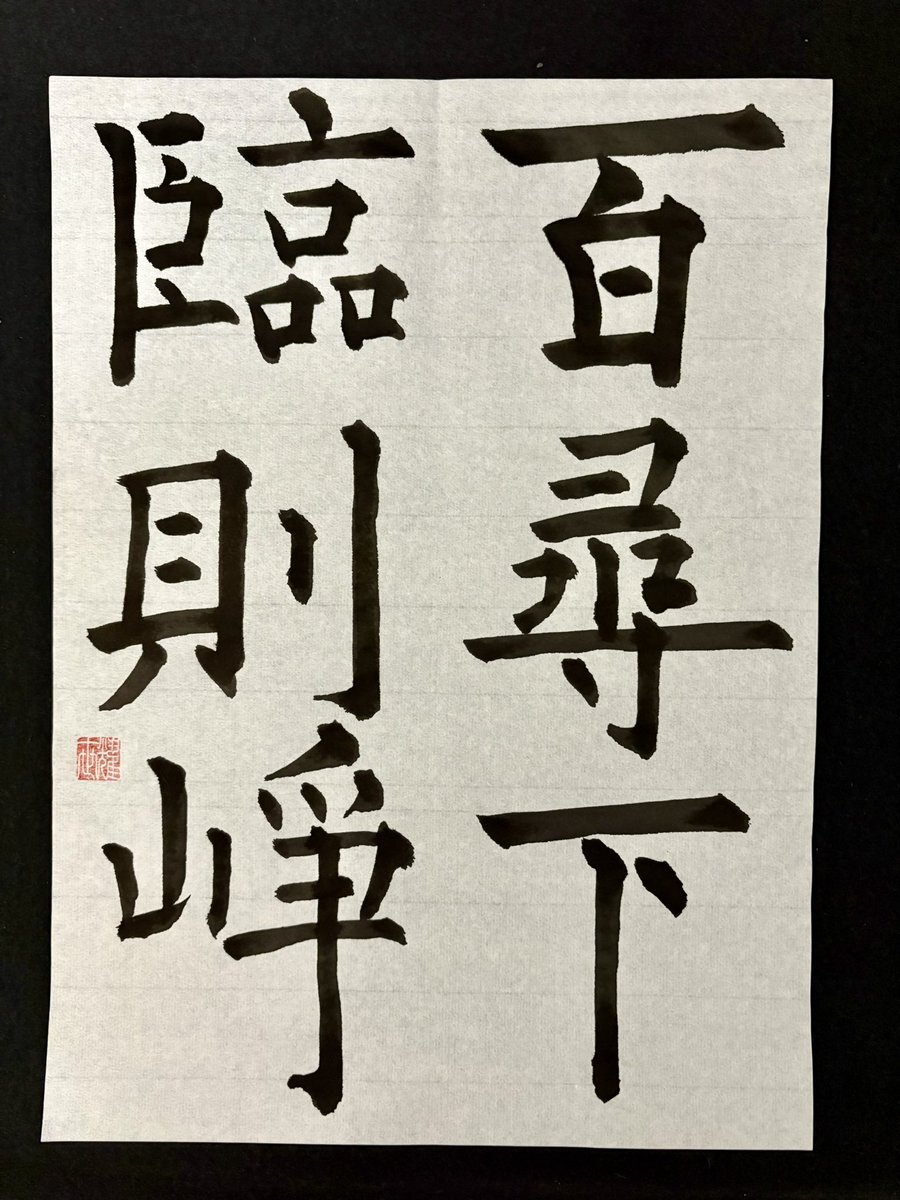 百尋下
臨則崢